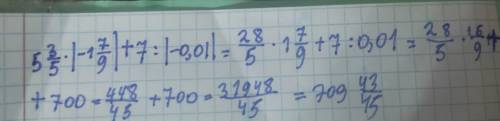 5 3/5 · |-1 7/9| + 7 : |-0,01| = 28/5 · 1 7/9 + 7 : 0,01 = 28/5 · 16/9 +
+ 700 = 448/45 + 700 = 31948/45 = 709 43/45